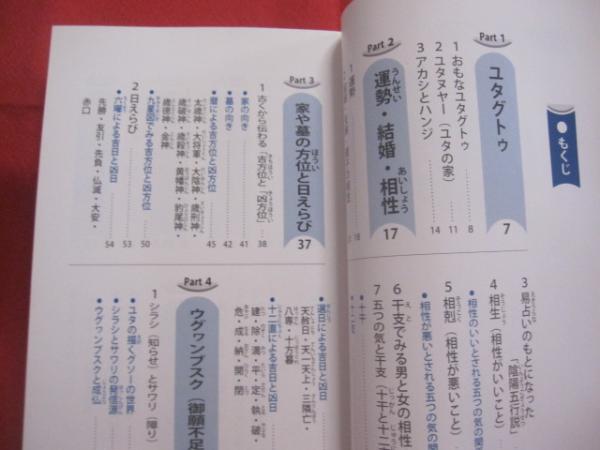 もくじ
Part 1
ユタグトゥ
7
1 おもなユタグトゥ 8
2 ユタヌヤー(ユタの家) 11
3 アカシとハンジ 14
Part 2
運勢・結婚・相性
うんせい
あいしょう
17
1 運勢
3 易占いのもとになった
「陰陽五行説」
4 相生(相性がいいこと)
●相性のいいとされる五つの気の関
5 相剋(相性が悪いこと)
●相性が悪いとされる五つの気の関
6 干支でみる男と女の相性
7 五つの気と干支(十干と十二
●十干
●十二支
Part 3
家や墓の方位と日えらび
ほうい
37
1 古くから伝わる「吉方位」と「凶方位」 38
●家の向き 41
●墓の向き 42
●暦による吉方位と凶方位 45
太歳神・大将軍・大陰神・歳刑神・
歳破神・歳殺神・黄幡神・豹尾神・
歳徳神・金神
●九星図でみる吉方位と凶方位 50
2 日えらび 53
●六曜による吉日と凶日 54
先勝・友引・先負・仏滅・大安・
赤口
●選日による吉日と凶日
天赦日・天一天上・三隣亡・
八専・十方暮
●十二直による吉日と凶日
建・除・満・平・定・執・破・
危・成・納・開・閉
Part 4
ウグヮンブスク(御願不足
1 シラシ(知らせ)とサワリ(障り)
●ユタの描くグソーの世界
●シラシとサワリの発信源
●ウグヮンブスクと成仏